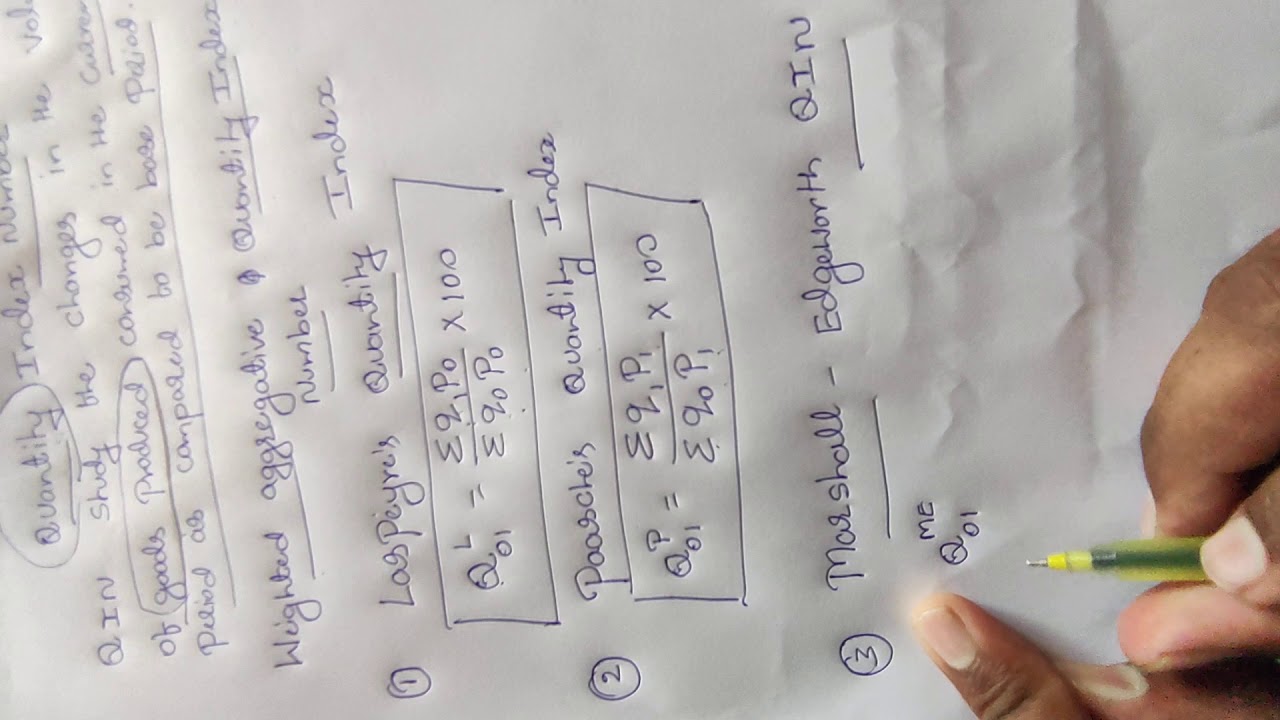 Quantity Index Number
QIN study the changes in the
of goods produced consumed in the
period as compared to be base period.
Weighted aggregative Quantity Index
Number
① Laspeyre's Quantity Index
Q₀₁ᴸ = Σq₁P₀ / Σq₀P₀ × 100
② Paasche's Quantity Index
Q₀₁ᴾ = Σq₁P₁ / Σq₀P₁ × 100
③ Marshall - Edgeworth QIN
Q₀₁ᴹᴱ